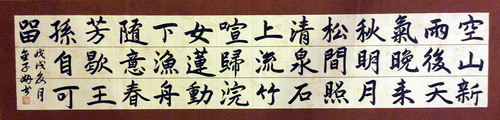 空山新
雨後天
氣晚来
秋明月
松間照
清泉石
上流竹
喧歸浣
女蓮動
下漁舟
隨意春
芳歇王
孫自可
留
戊戌夏月